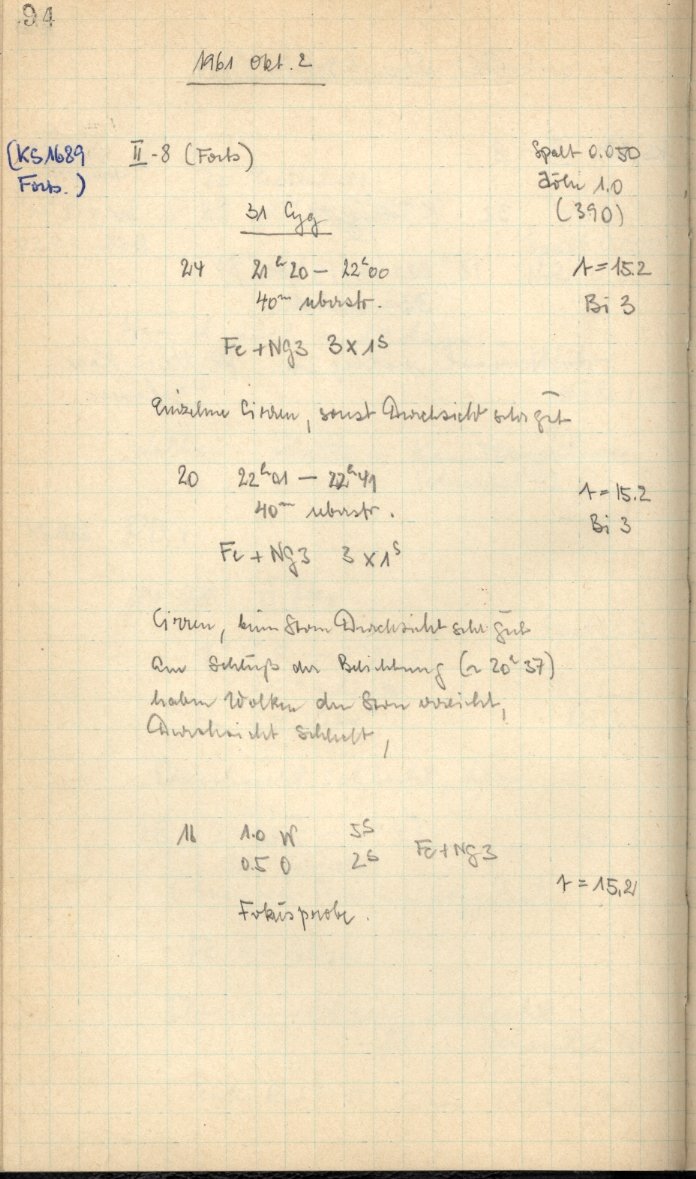 94
1961 Okt. 2
(KS1689 II-8 (Forts) Spalt 0.050
Forts.) Höhe 1.0
(390)
31 Cyg
24 21ʰ20 – 22ʰ00 t=15.2
40ᵐ überstr. Bi 3
Fe + Ng3 3x1ˢ
Einzelne Cirren, sonst Durchsicht sehr gut
20 22ʰ01 – 22ʰ41 t=15.2
40ᵐ überstr. Bi 3
Fe + Ng3 3x1ˢ
Cirren, beim Stern Durchsicht sehr gut
Am Schluß der Belichtung (~ 20ʰ37)
haben Wolken den Stern erreicht,
Durchsicht schlecht,
16 1.0 W 5ˢ Fe+Ng3
0.5 O 2ˢ
t=15,2
Fokusprobe.